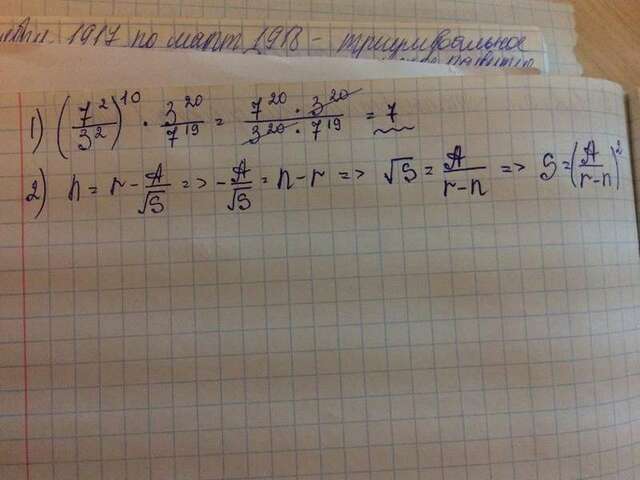 1917 по март 1918 – триумфальное
1) (7²/3²)¹⁰ · 3²⁰/7¹⁹ = 7²⁰ · 3²⁰/3²⁰ · 7¹⁹ = 7
2) n = r - A/√S => - A/√S = n - r => √S = A/r-n => S = (A/r-n)²